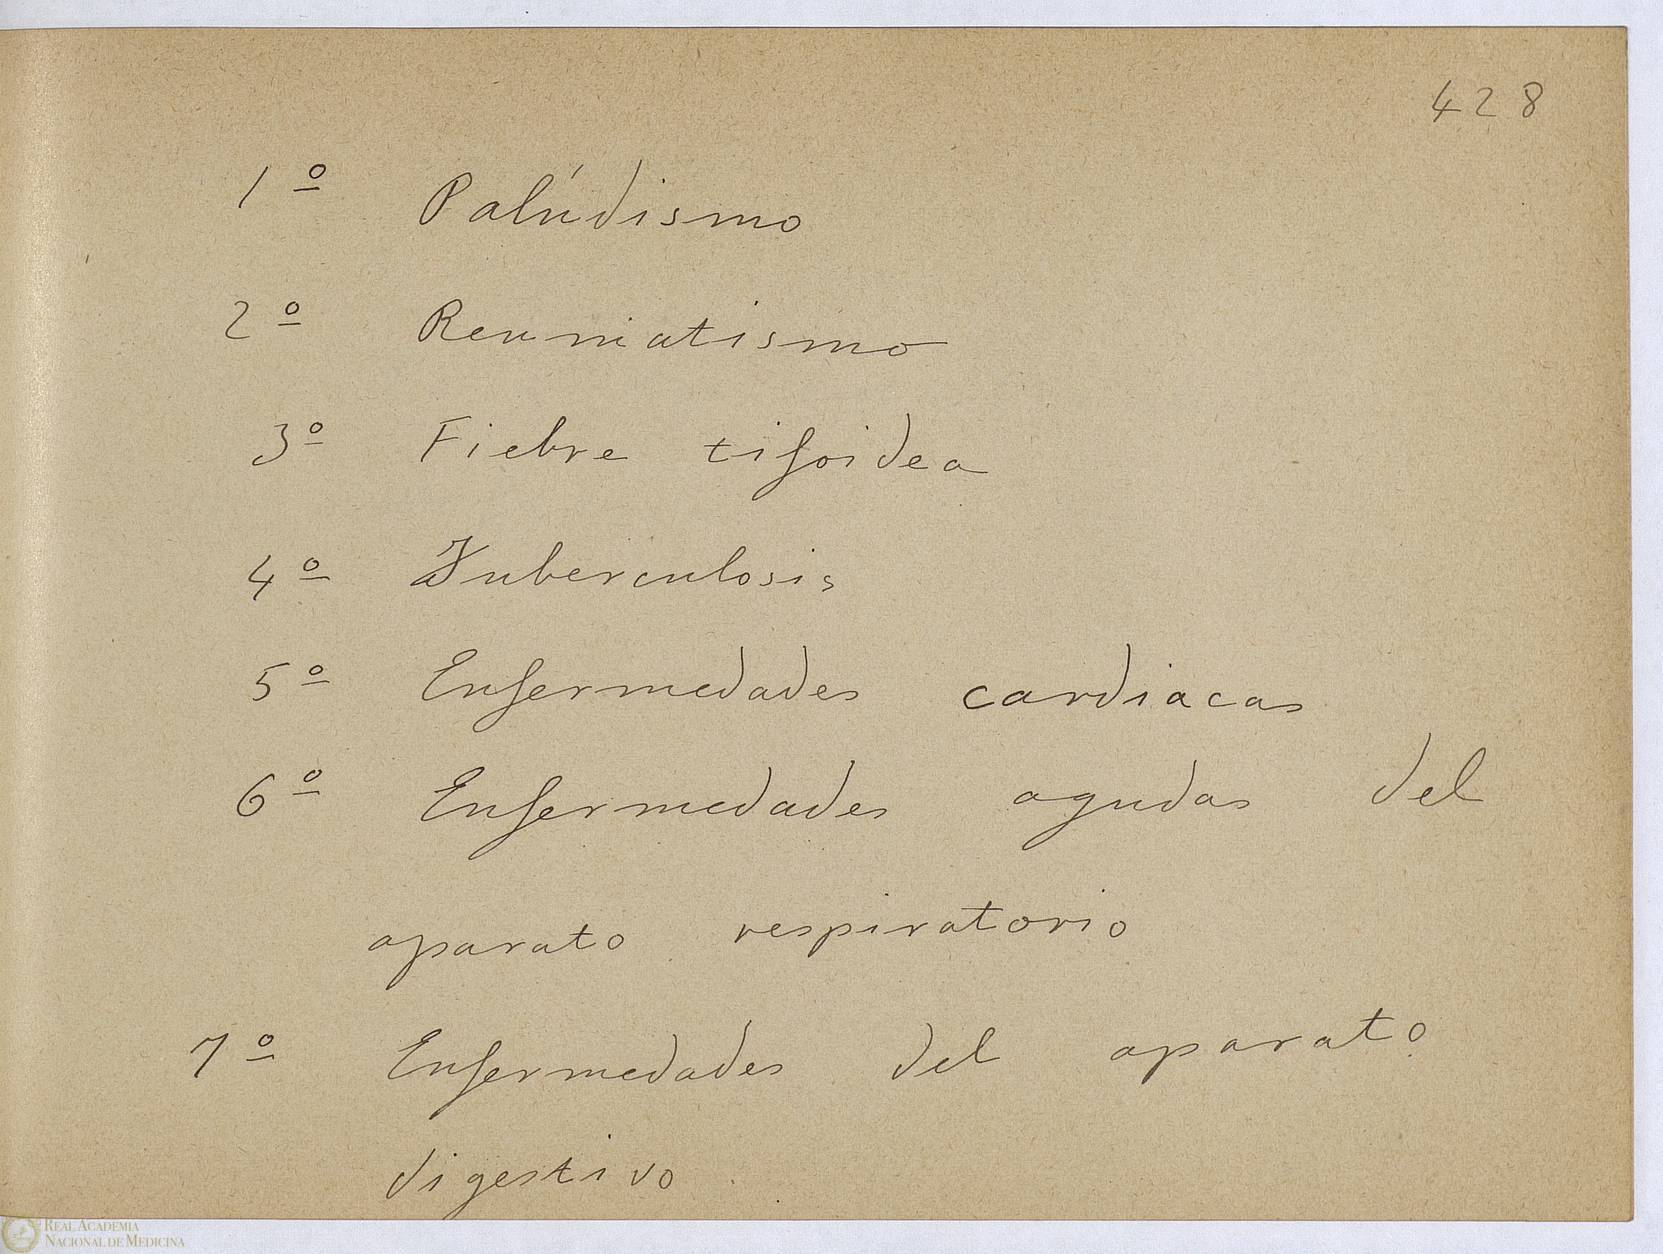 428
1º Palúdismo
2º Reumatismo
3º Fiebre tifoidea
4º Tuberculosis
5º Enfermedades cardiacas
6º Enfermedades agudas del
aparato respiratorio
7º Enfermedades del aparato
digestivo
REAL ACADEMIA
NACIONAL DE MEDICINA